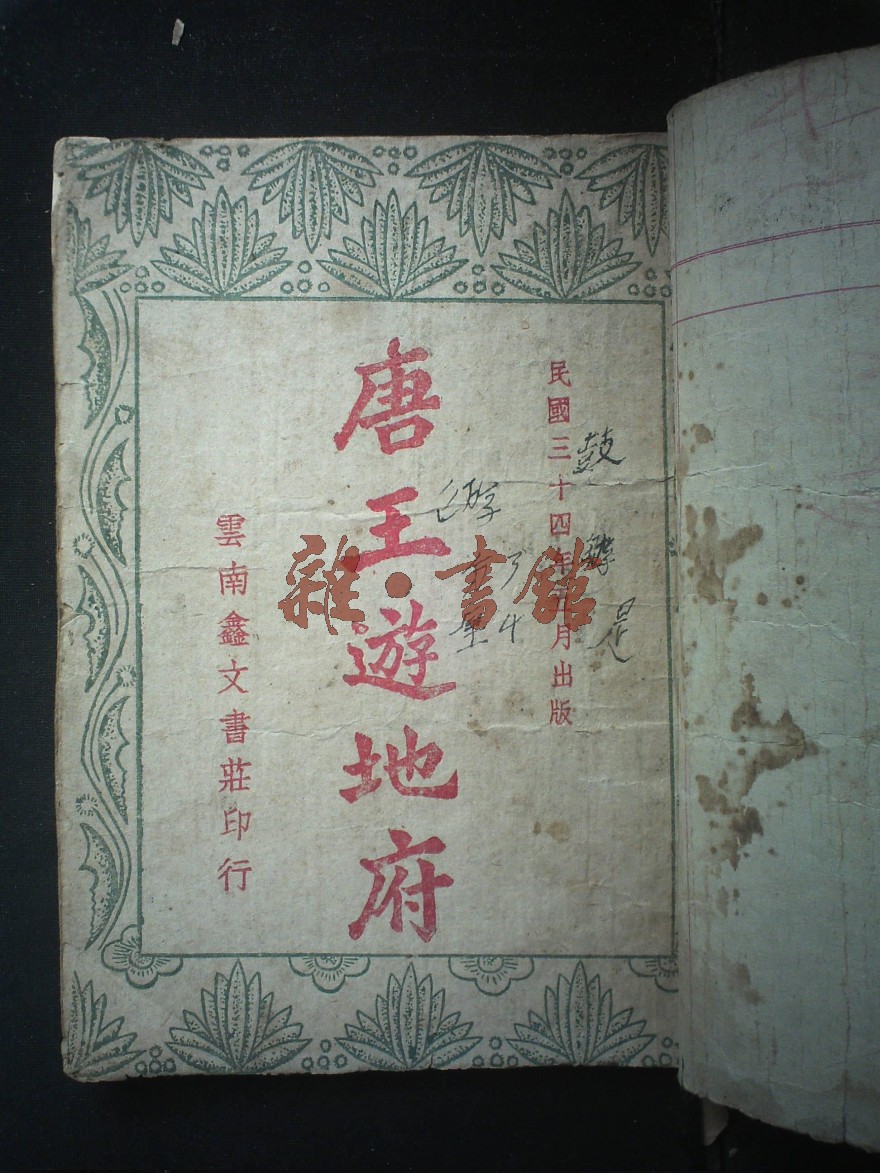 民國三十四年五月出版
鼓
是
唐王遊地府
雲南鑫文書莊印行
雜·書館